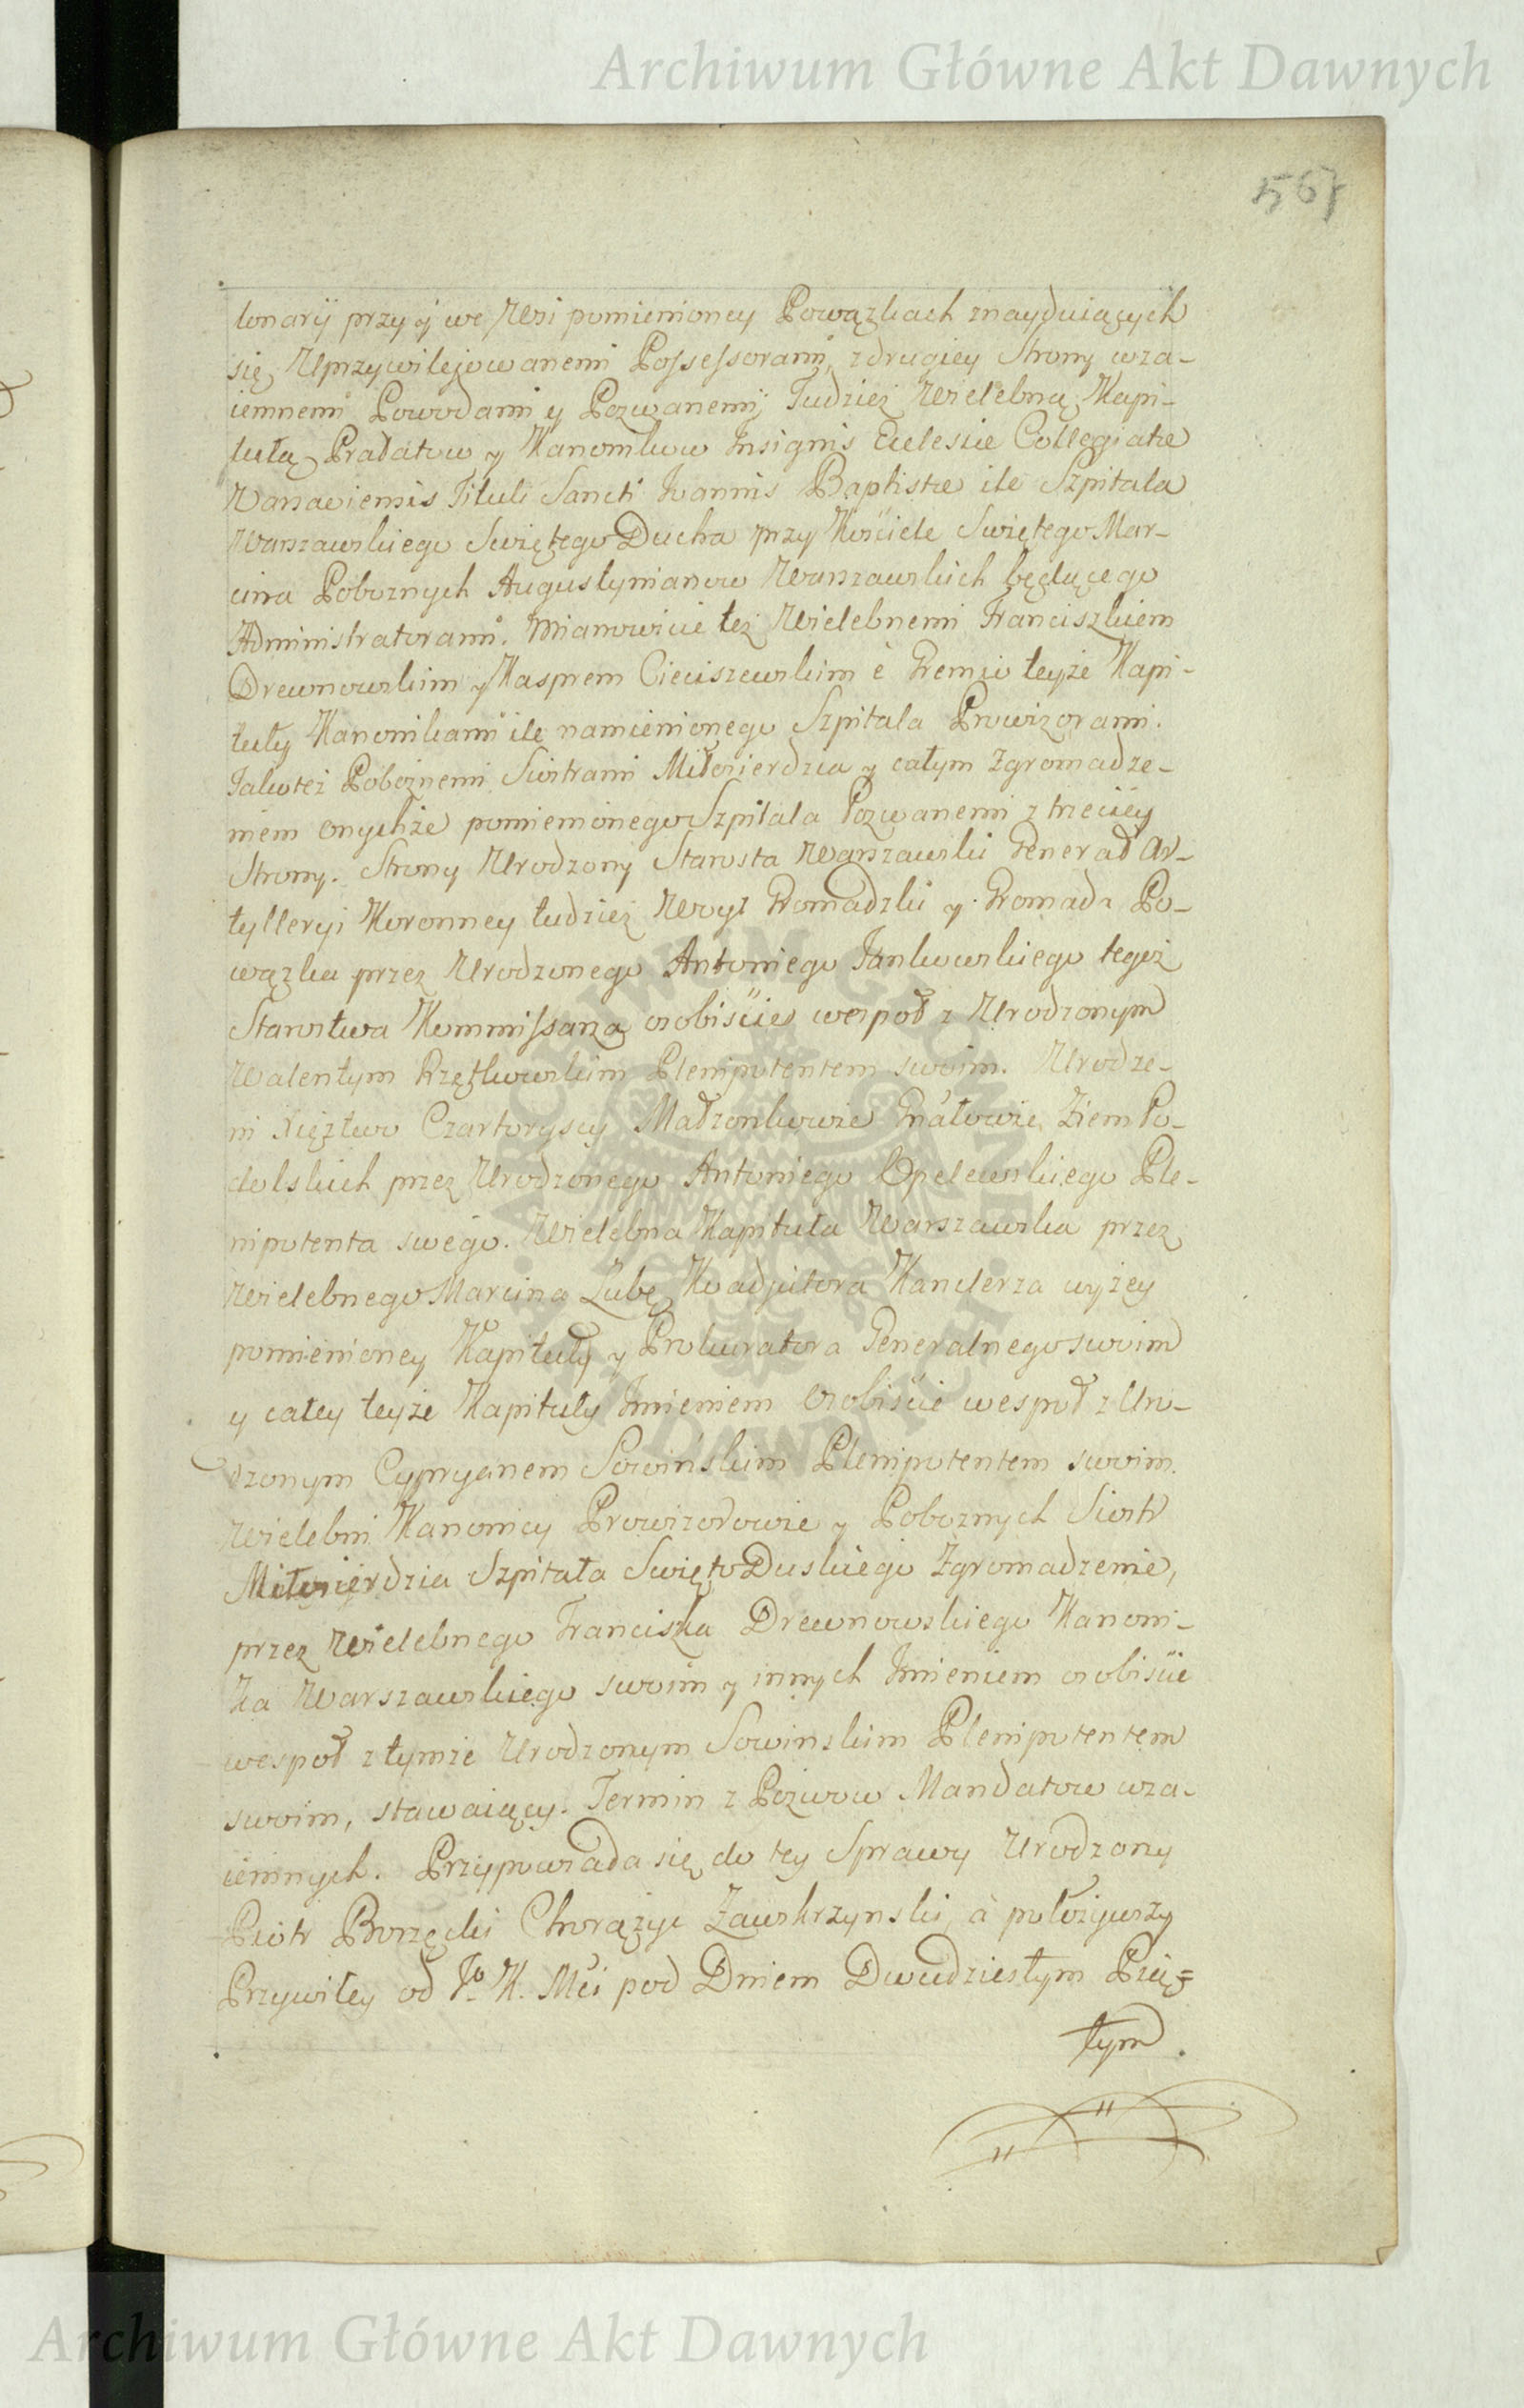 Archiwum Główne Akt Dawnych
567
lonarij przy y we Wsi pomienioney Powązkach znayduiących
się Uprzywilejowanemi Possessorami, z drugiey Strony wza-
iemnemi Powodami y Pozwanemi, Tudzież Wielebną Kapi-
tułą Prałatow y Kanonikow Insignis Eclesiæ Collegiatæ
Varsaviensis Tituli Sancti Joannis Baptistæ ile Szpitala
Warszawskiego Swiętego Ducha przy Kościele Swiętego Mar-
cina Pobożnych Augustynianow Warszawskich będącego
Administratorami. Mianowicie też Wielebnemi Franciszkiem
Drewnowskim y Kasprem Cieciszewskim è Gremio teyże Kapi-
tuły Kanonikami ile namienionego Szpitala Prowizorami.
Jako też Pobożnemi Siostrami Miłosierdzia y całym Zgromadze-
niem onychże pomienionego Szpitala Pozwanemi z trzeciey
Strony. Strony Urodzony Starosta Warszawski Generał Ar-
tylleryi Koronney tudzież Woyt Gromadzki y Gromada Po-
wązka przez Urodzonego Antoniego Jankowskiego tegoż
Starostwa Kommissarza osobiście wespoł z Urodzonym
Walentym Rzętkowskim Plenipotentem swoim. Urodze-
ni Xięztwo Czartoryscy Małżonkowie Gnałowie Ziem Po-
dolskich przez Urodzonego Antoniego Opelewskiego Ple-
nipotenta swego. Wielebna Kapituła Warszawska przez
Wielebnego Marcina Lubę Koadjutora Kanclerza wyżey
pomienioney Kapituły y Prokuratora Generalnego swoim
y całey teyże Kapituły Imieniem osobiście wespoł z Uro-
dzonym Cypryanem Sowińskim Plenipotentem swoim.
Wielebni Kanonicy Prowizorowie y Pobożnych Siostr
Miłosierdzia Szpitala Swięto Duskiego Zgromadzenie,
przez Wielebnego Franciszka Drewnowskiego Kanoni-
ka Warszawskiego swoim y innych Imieniem osobiście
wespoł z tymże Urodzonym Sowinskim Plenipotentem
swoim, stawaiący. Termin z Pozwow Mandatow wza-
iemnych. Przypowiada się do tey Sprawy Urodzony
Piotr Borzęcki Chorążyc Zawskrzynski, à położywszy
Przywiley od J. K. Mci pod Dniem Dwudziestym Pią=
tym.
Archiwum Główne Akt Dawnych